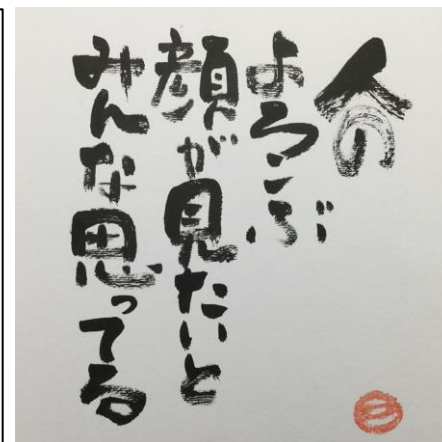 人の
よろこぶ
顔が見たいと
みんな思ってる